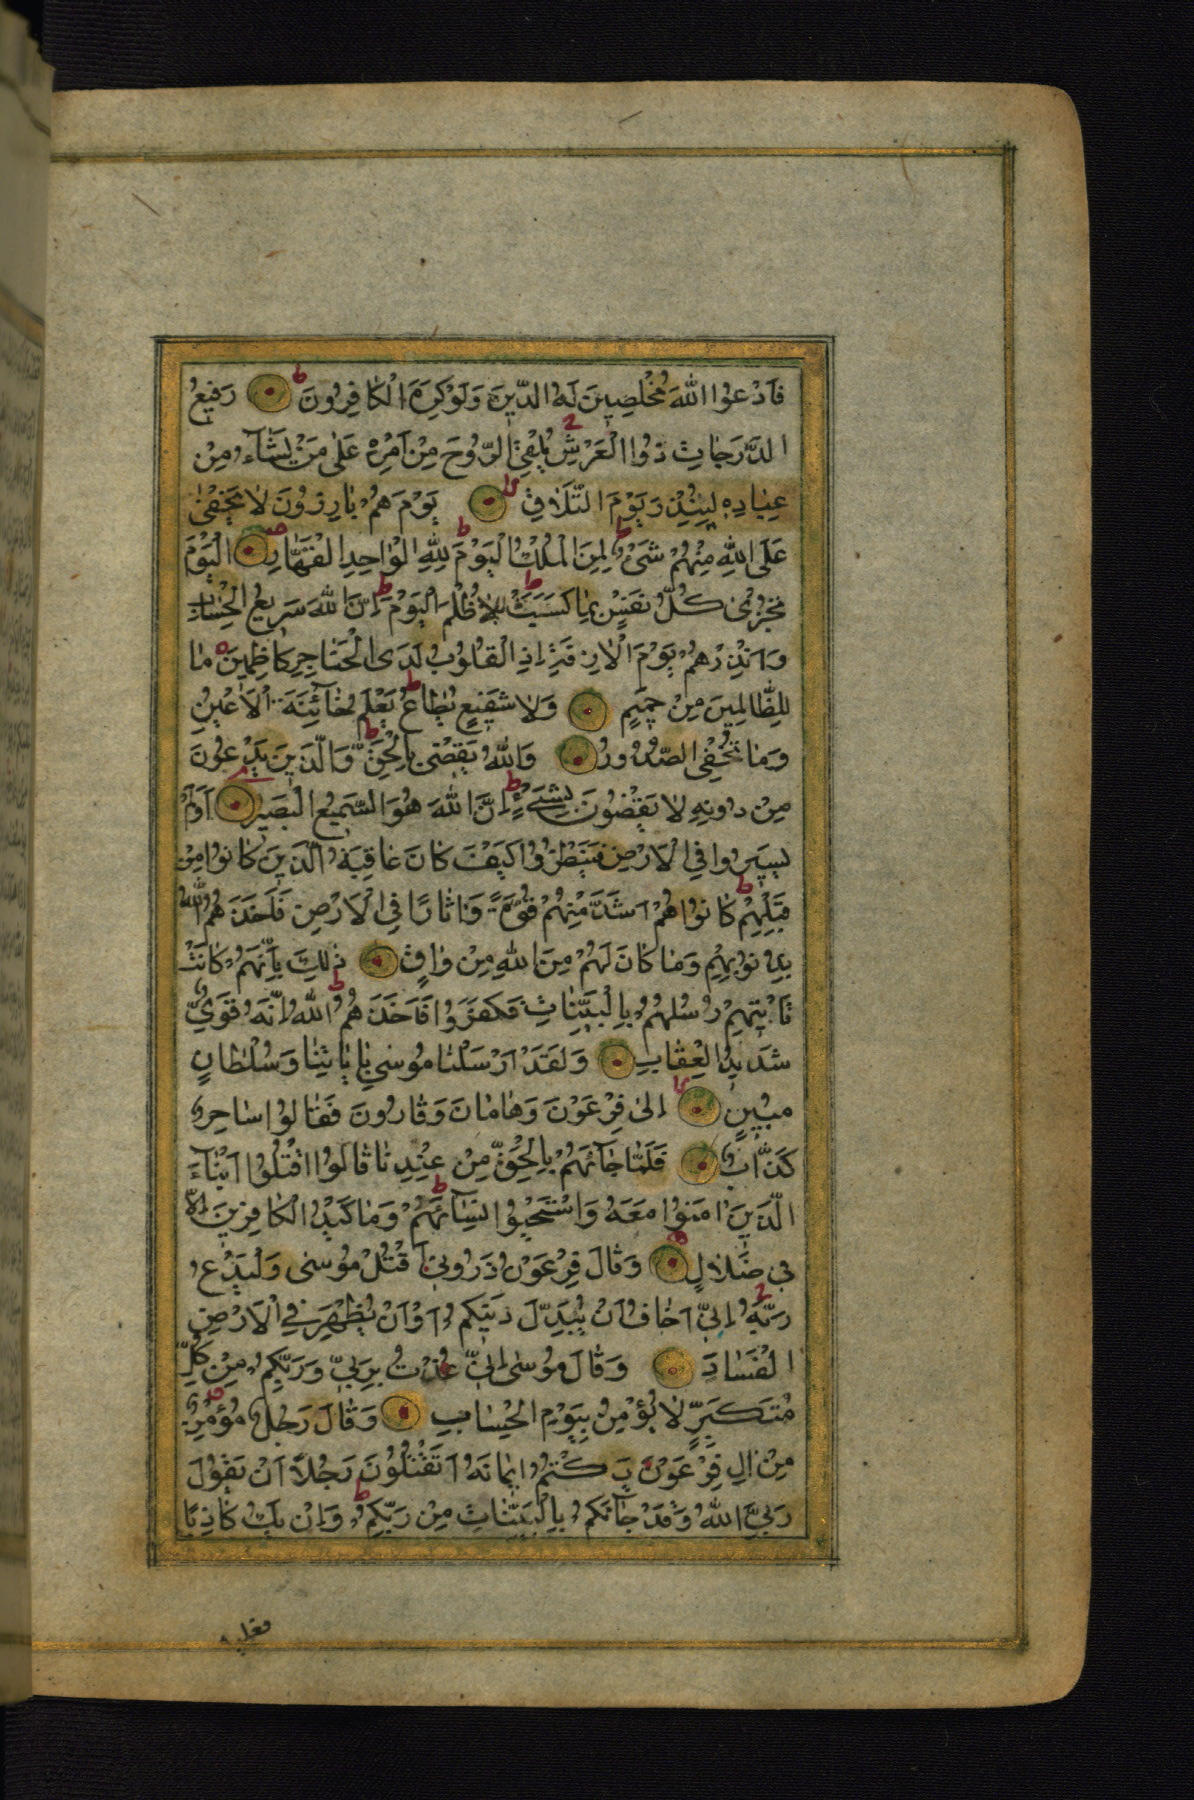 فَادْعُوا اللّٰهَ مُخْلِصِينَ لَهُ الدِّينَ وَلَوْ كَرِهَ الْكَافِرُونَ ط رَفِيعُ
الدَّرَجَاتِ ذُوا الْعَرْشِ يُلْقِي الرُّوحَ مِنْ اَمْرِهِ عَلٰى مَنْ يَشَآءُ مِنْ
عِبَادِهِ لِيُنْذِرَ يَوْمَ التَّلَاقِ لا يَوْمَ هُمْ بَارِزُونَ لَا يَخْفٰى
عَلَى اللّٰهِ مِنْهُمْ شَيْءٌ ط لِمَنِ الْمُلْكُ الْيَوْمَ ط لِلّٰهِ الْوَاحِدِ الْقَهَّارِ اَلْيَوْمَ
تُجْزٰى كُلُّ نَفْسٍ بِمَا كَسَبَتْ ط لَا ظُلْمَ الْيَوْمَ ط اِنَّ اللّٰهَ سَرِيعُ الْحِسَابِ
وَاَنْذِرْهُمْ يَوْمَ الْاٰزِفَةِ اِذِ الْقُلُوبُ لَدَى الْحَنَاجِرِ كَاظِمِينَ مَا
لِلظَّالِمِينَ مِنْ حَمِيمٍ وَلَا شَفِيعٍ يُطَاعُ ط يَعْلَمُ خَآئِنَةَ الْاَعْيُنِ
وَمَا تُخْفِى الصُّدُورُ وَاللّٰهُ يَقْضِى بِالْحَقِّ ط وَالَّذِينَ يَدْعُونَ
مِنْ دُونِهِ لَا يَقْضُونَ بِشَىْءٍ ط اِنَّ اللّٰهَ هُوَ السَّمِيعُ الْبَصِيرُ اَوَلَمْ
يَسِيرُوا فِى الْاَرْضِ فَيَنْظُرُوا كَيْفَ كَانَ عَاقِبَةُ الَّذِينَ كَانُوا مِنْ
قَبْلِهِمْ ط كَانُوا هُمْ اَشَدَّ مِنْهُمْ قُوَّةً وَاٰثَارًا فِى الْاَرْضِ فَاَخَذَهُمُ اللّٰهُ
بِذُنُوبِهِمْ وَمَا كَانَ لَهُمْ مِنَ اللّٰهِ مِنْ وَاقٍ ذٰلِكَ بِاَنَّهُمْ كَانَتْ
تَاْتِيهِمْ رُسُلُهُمْ بِالْبَيِّنَاتِ فَكَفَرُوا فَاَخَذَهُمُ اللّٰهُ ط اِنَّهُ قَوِيٌّ
شَدِيدُ الْعِقَابِ وَلَقَدْ اَرْسَلْنَا مُوسٰى بِاٰيَاتِنَا وَسُلْطَانٍ
مُبِينٍ لا اِلٰى فِرْعَوْنَ وَهَامَانَ وَقَارُونَ فَقَالُوا سَاحِرٌ
كَذَّابٌ فَلَمَّا جَآءَهُمْ بِالْحَقِّ مِنْ عِنْدِنَا قَالُوا اقْتُلُوا اَبْنَآءَ
الَّذِينَ اٰمَنُوا مَعَهُ وَاسْتَحْيُوا نِسَآءَهُمْ ط وَمَا كَيْدُ الْكَافِرِينَ اِلَّا
فِى ضَلَالٍ وَقَالَ فِرْعَوْنُ ذَرُونِى اَقْتُلْ مُوسٰى وَلْيَدْعُ
رَبَّهُ اِنِّى اَخَافُ اَنْ يُبَدِّلَ دِينَكُمْ اَوْ اَنْ يُظْهِرَ فِى الْاَرْضِ
الْفَسَادَ وَقَالَ مُوسٰى اِنِّى عُذْتُ بِرَبِّى وَرَبِّكُمْ مِنْ كُلِّ
مُتَكَبِّرٍ لَا يُؤْمِنُ بِيَوْمِ الْحِسَابِ وَقَالَ رَجُلٌ مُؤْمِنٌ
مِنْ اٰلِ فِرْعَوْنَ يَكْتُمُ اِيمَانَهُ اَتَقْتُلُونَ رَجُلًا اَنْ يَقُولَ
رَبِّىَ اللّٰهُ وَقَدْ جَآءَكُمْ بِالْبَيِّنَاتِ مِنْ رَبِّكُمْ ط وَاِنْ يَكُ كَاذِبًا
فعليه